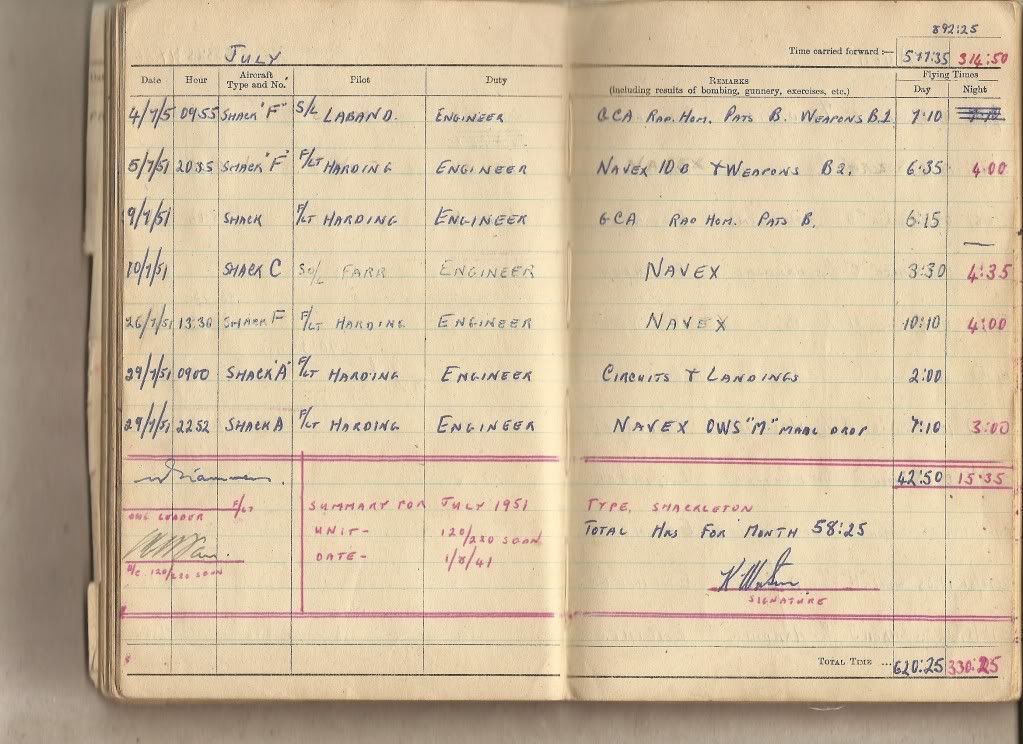 892:25
JULY
Time carried forward :— 577:35 314:50
Date Hour Aircraft Type and No. Pilot Duty REMARKS (including results of bombing, gunnery, exercises, etc.) Flying Times Day Night
4/7/5 0955 SHACK "F" S/L LABAND. ENGINEER GCA RAD. HOM. PATS B. WEAPONS B.2. 7:10
5/7/51 2035 SHACK "F" F/LT HARDING ENGINEER NAVEX 10 B + WEAPONS B2. 6:35 4:00
9/7/51 SHACK F/LT HARDING ENGINEER GCA RAD HOM. PATS B. 6:15 —
10/7/51 SHACK C FARR ENGINEER NAVEX 3:30 4:35
26/7/51 13:30 SHACK F F/LT HARDING ENGINEER NAVEX 10:10 4:00
29/7/51 0900 SHACK "A" F/LT HARDING ENGINEER CIRCUITS + LANDINGS 2:00
29/7/51 2252 SHACK A F/LT HARDING ENGINEER NAVEX OWS "M" MAIL DROP 7:10 3:00
42:50 15:35
F/LT
ENG LEADER
O/C. 120/220 SQDN
SUMMARY FOR JULY 1951
UNIT- 120/220 SQDN
DATE- 1/8/41
TYPE. SHACKLETON
TOTAL HRS FOR MONTH 58:25
K Watson
SIGNATURE
TOTAL TIME ... 620:25 330:25